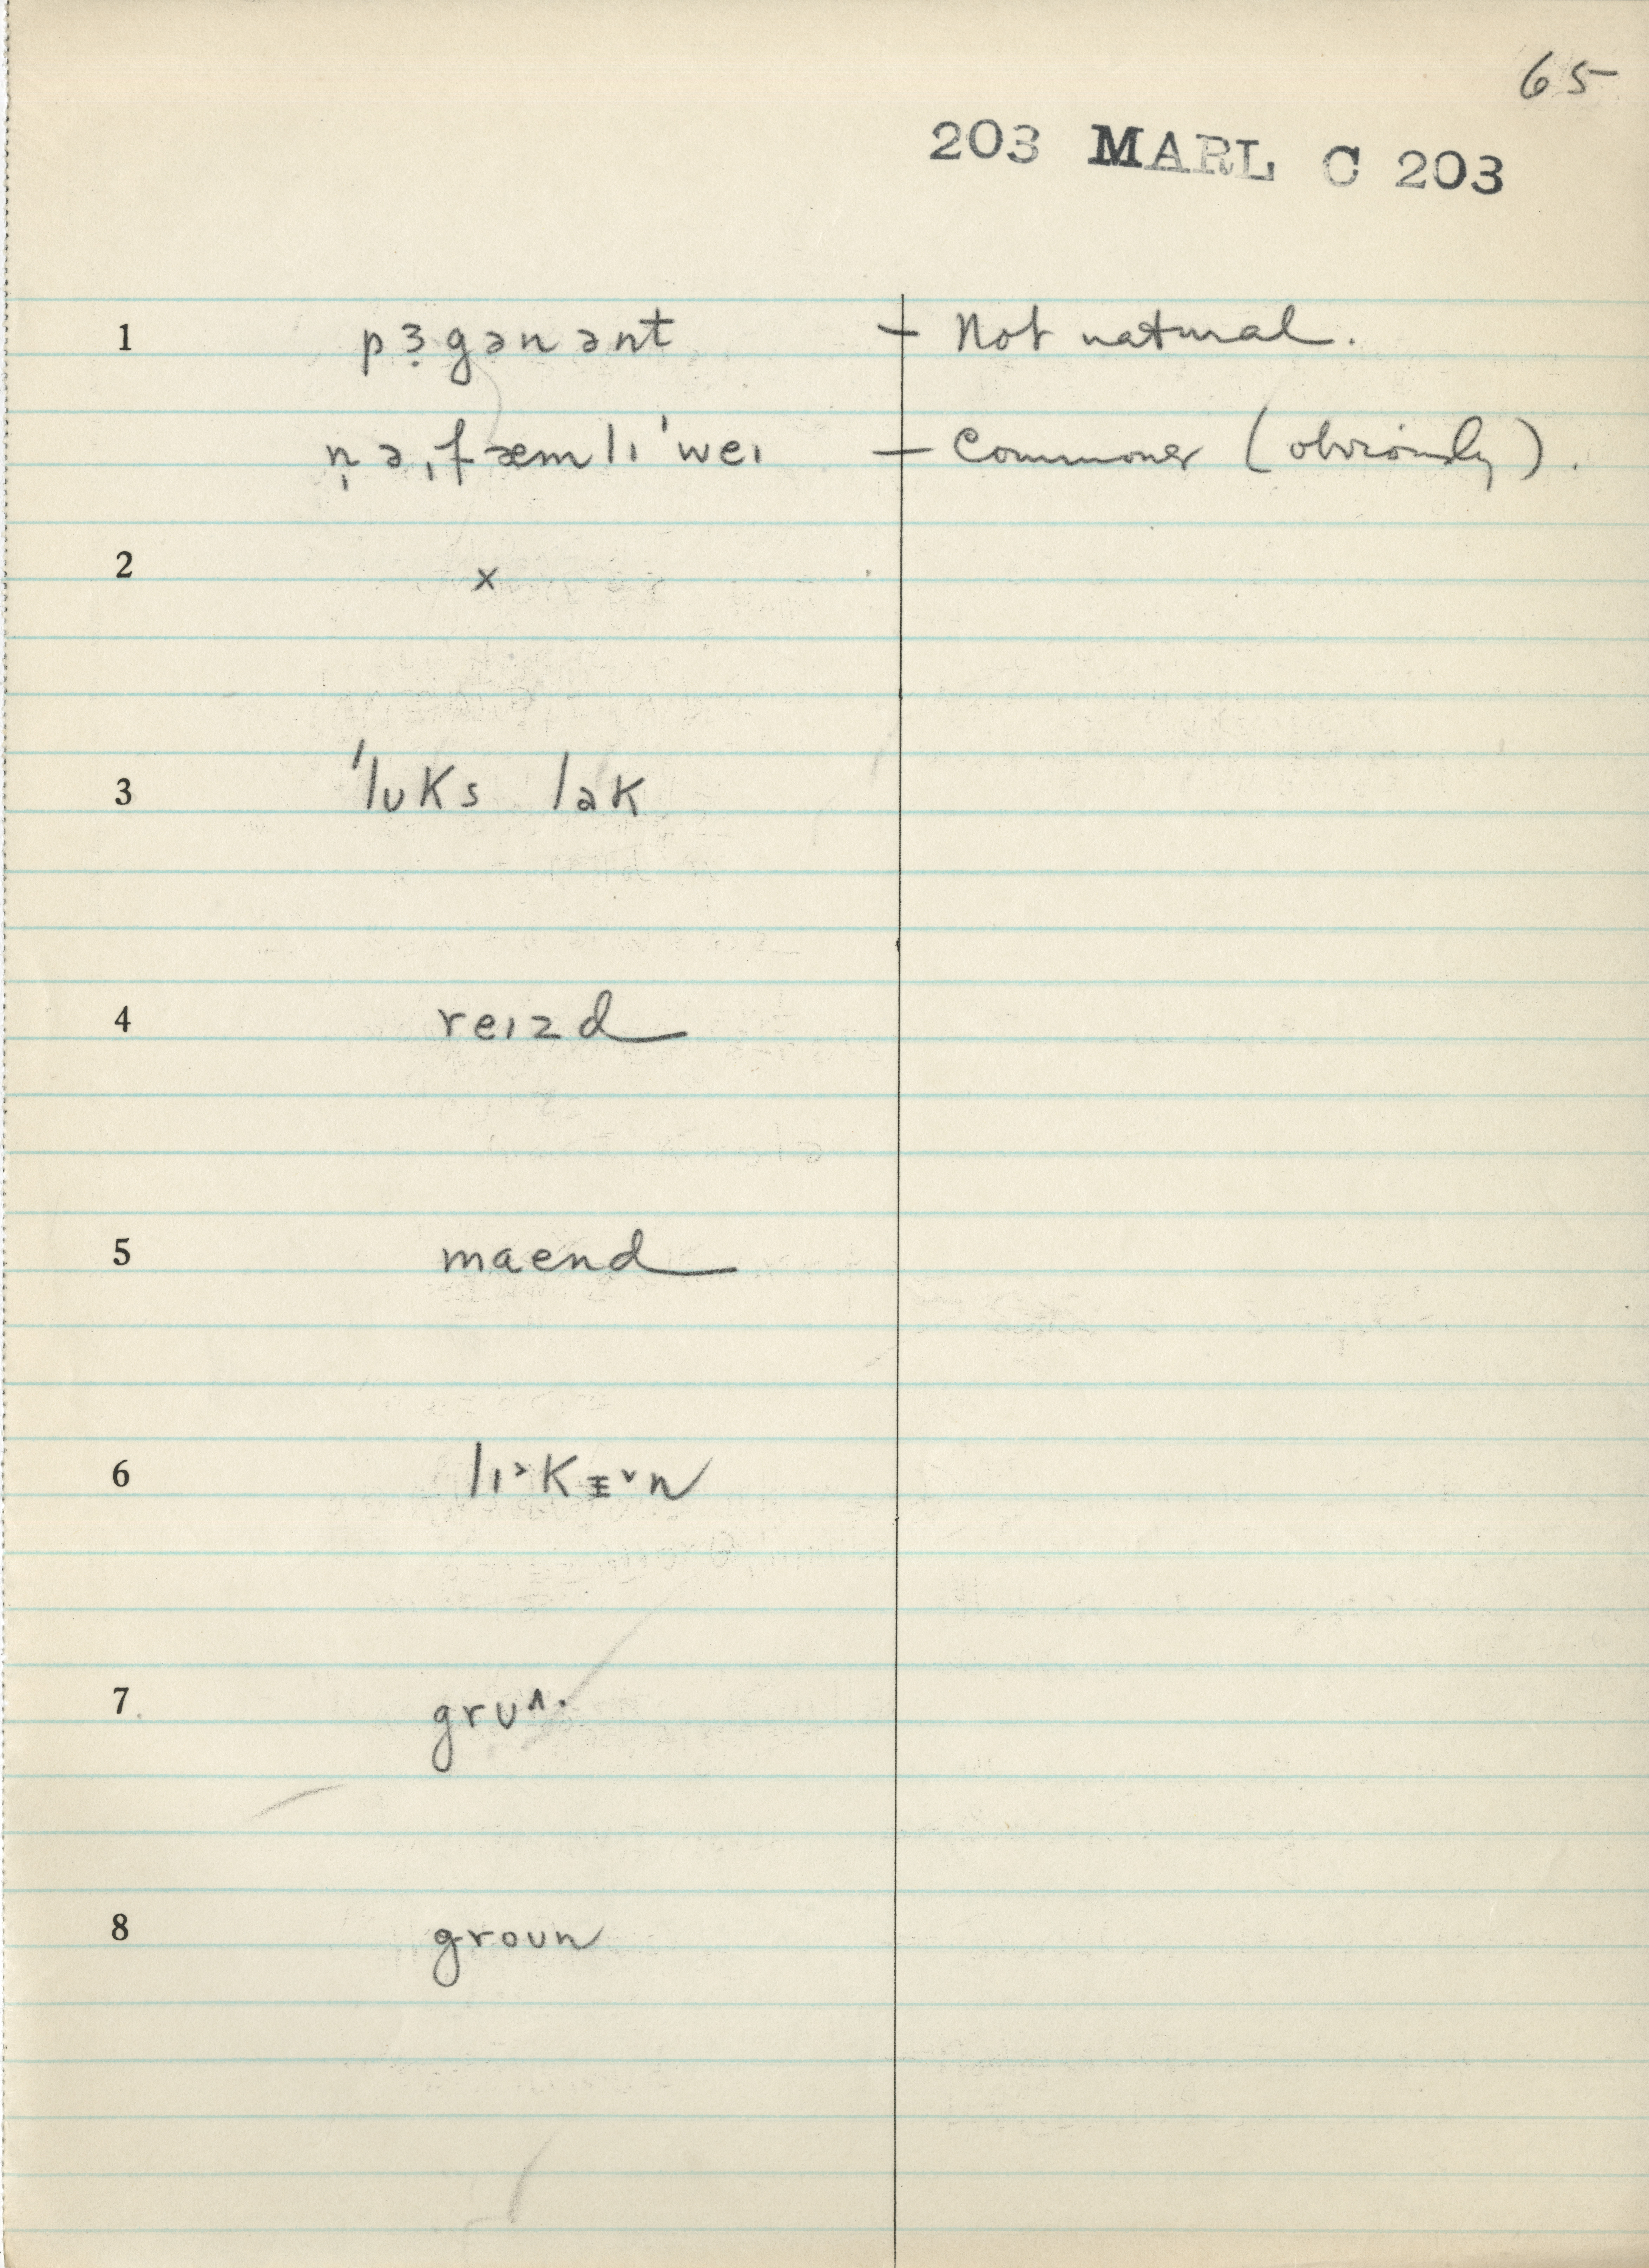 65
203 MARL C 203
1 pɜ̣gənənt – Not natural.
ṇə ˌfæmlɪ ˈweɪ – Commoner (obviously).
2 x
3 ˈlʊks lək
4 reɪzd
5 maend
6 lɪ˃kɪ˅n
7 grʊ^.
8 groun